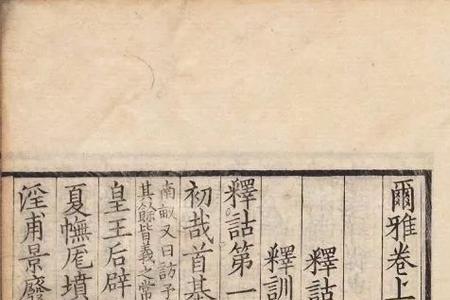 爾雅卷上
釋詁
釋訓
釋詁第一
初哉首基
南畝又曰訪予
其餘皆義之常
皇王后辟
夏幠厖墳
淫甫景廢